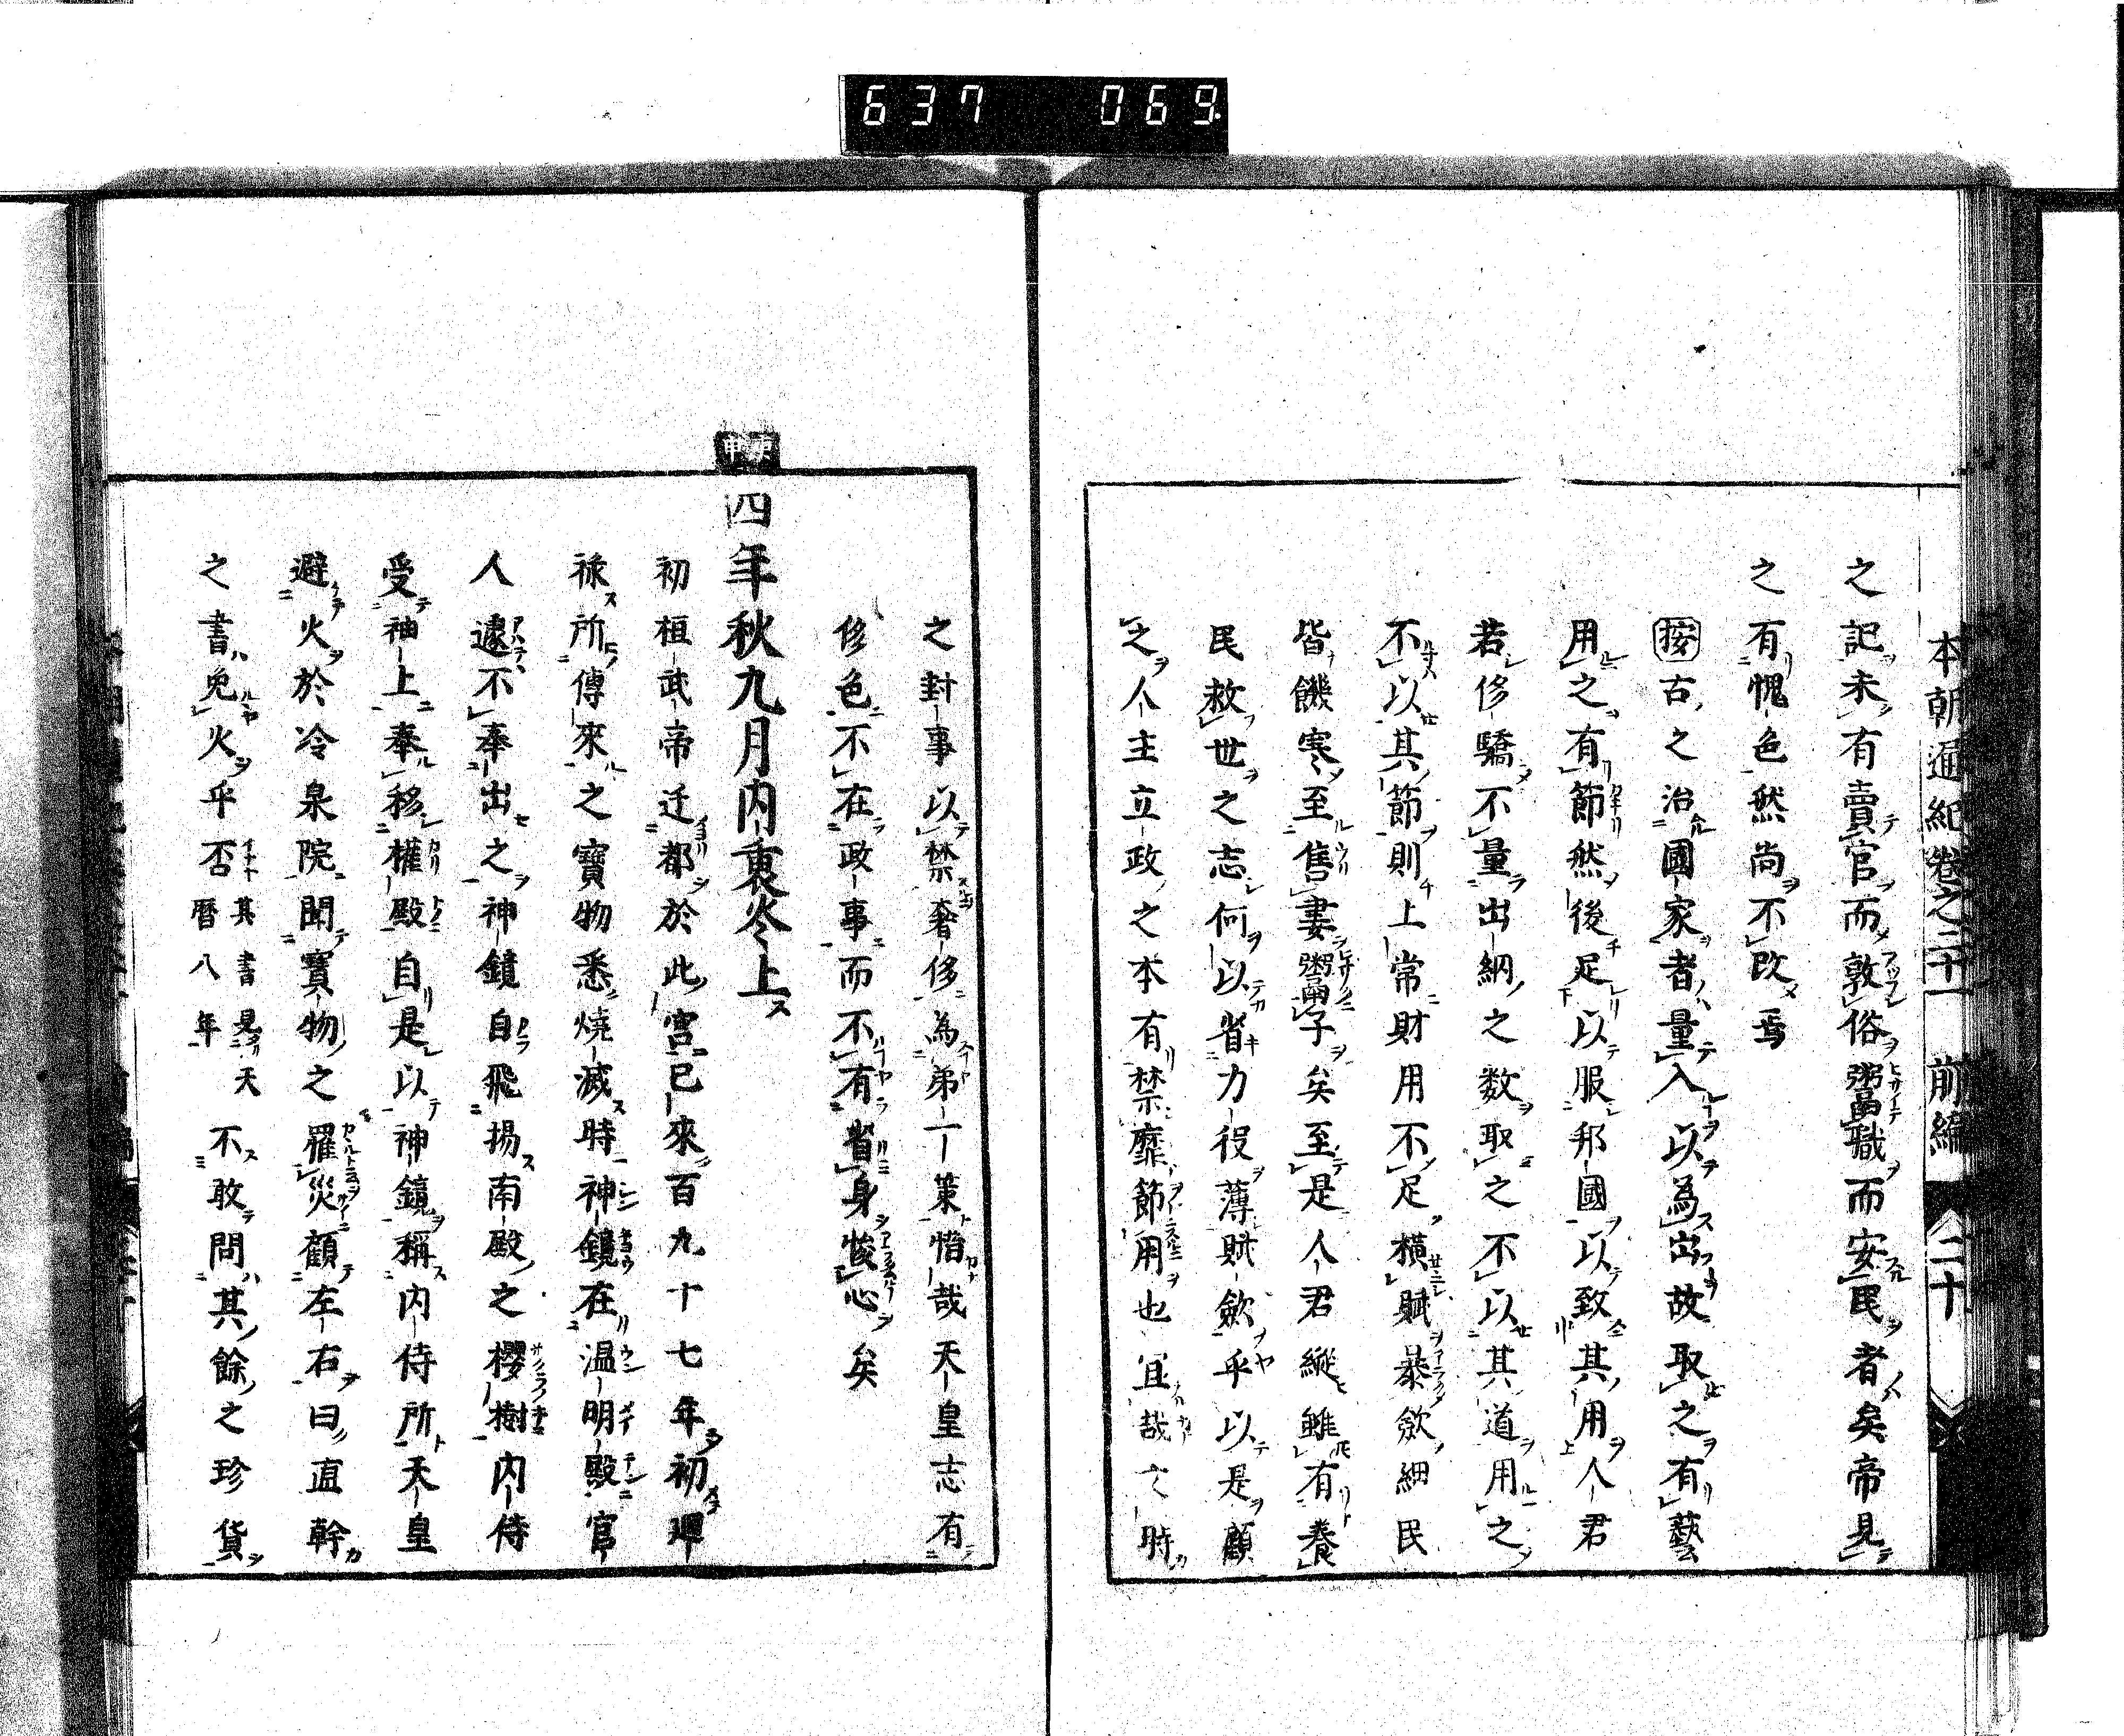 637 069
本朝通紀卷之二十一 前編 二十
之記未有賣官而敦俗鬻職而安民者矣帝見
之有愧色然尚不改焉
按古之治國家者量入以為出故取之有藝
用之有節然後足以服邦國以致其用人君
若侈驕不量出納之数取之不以其道用之
不以其節則上常財用不足橫賦暴斂細民
皆饑寒至售妻鬻子矣至是人君縱雖有養
民救世之志何以省力役薄賦斂乎以是顧
之人主立政之本有禁靡節用也宜哉之時
之封事以禁奢侈為第一策惜哉天皇志有
侈色不在政事而不有省身悛心矣
四年秋九月内裏災上
初桓武帝迁都於此宮已來百九十七年初罹
祿所傳來之寶物悉燒滅時神鏡在温明殿官
人遽不奉出之神鏡自飛揚南殿之櫻樹内侍
受袖上奉移權殿自是以神鏡稱内侍所天皇
避火於冷泉院聞寶物之罹災顧左右曰直幹
之書免火乎否其書見天暦八年不敢問其餘之珍貨